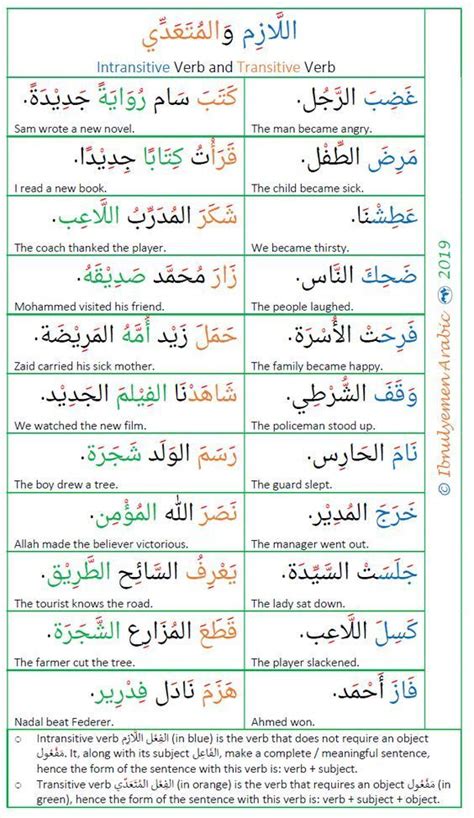 اللَّازِم وَالمُتَعَدِّي
Intransitive Verb and Transitive Verb
غَضِبَ الرَّجُل.
The man became angry.
كَتَبَ سَام رُوَايَةً جَدِيْدَةً.
Sam wrote a new novel.
مَرِضَ الطِّفْل.
The child became sick.
قَرَأْتُ كِتَابًا جَدِيْدًا.
I read a new book.
عَطِشْنَا.
We became thirsty.
شَكَرَ المُدَرِّبُ اللَّاعِب.
The coach thanked the player.
ضَحِكَ النَّاس.
The people laughed.
زَارَ مُحَمَّد صَدِيْقَهُ.
Mohammed visited his friend.
فَرِحَتْ الأُسْرَة.
The family became happy.
حَمَلَ زَيْد أُمَّهُ المَرِيْضَة.
Zaid carried his sick mother.
وَقَفَ الشُّرْطِي.
The policeman stood up.
شَاهَدْنَا الفِيْلمَ الجَدِيْد.
We watched the new film.
نَامَ الحَارِس.
The guard slept.
رَسَمَ الوَلَد شَجَرَة.
The boy drew a tree.
خَرَجَ المُدِيْر.
The manager went out.
نَصَرَ الله المُؤْمِن.
Allah made the believer victorious.
جَلَسَتْ السَّيِّدَة.
The lady sat down.
يَعْرِفُ السَّائِح الطَّرِيْق.
The tourist knows the road.
كَسِلَ اللَّاعِب.
The player slackened.
قَطَعَ المُزَارِع الشَّجَرَة.
The farmer cut the tree.
فَازَ أَحْمَد.
Ahmed won.
هَزَمَ نَادَل فِدْرِير.
Nadal beat Federer.
© Ibnulyemen Arabic 2019
o Intransitive verb الفِعْل اللَّازِم (in blue) is the verb that does not require an object
مَفْعُول. It, along with its subject الفَاعِل, make a complete / meaningful sentence,
hence the form of the sentence with this verb is: verb + subject.
o Transitive verb الفِعْل المُتَعَدِّي (in orange) is the verb that requires an object مَفْعُول (in
green), hence the form of the sentence with this verb is: verb + subject + object.